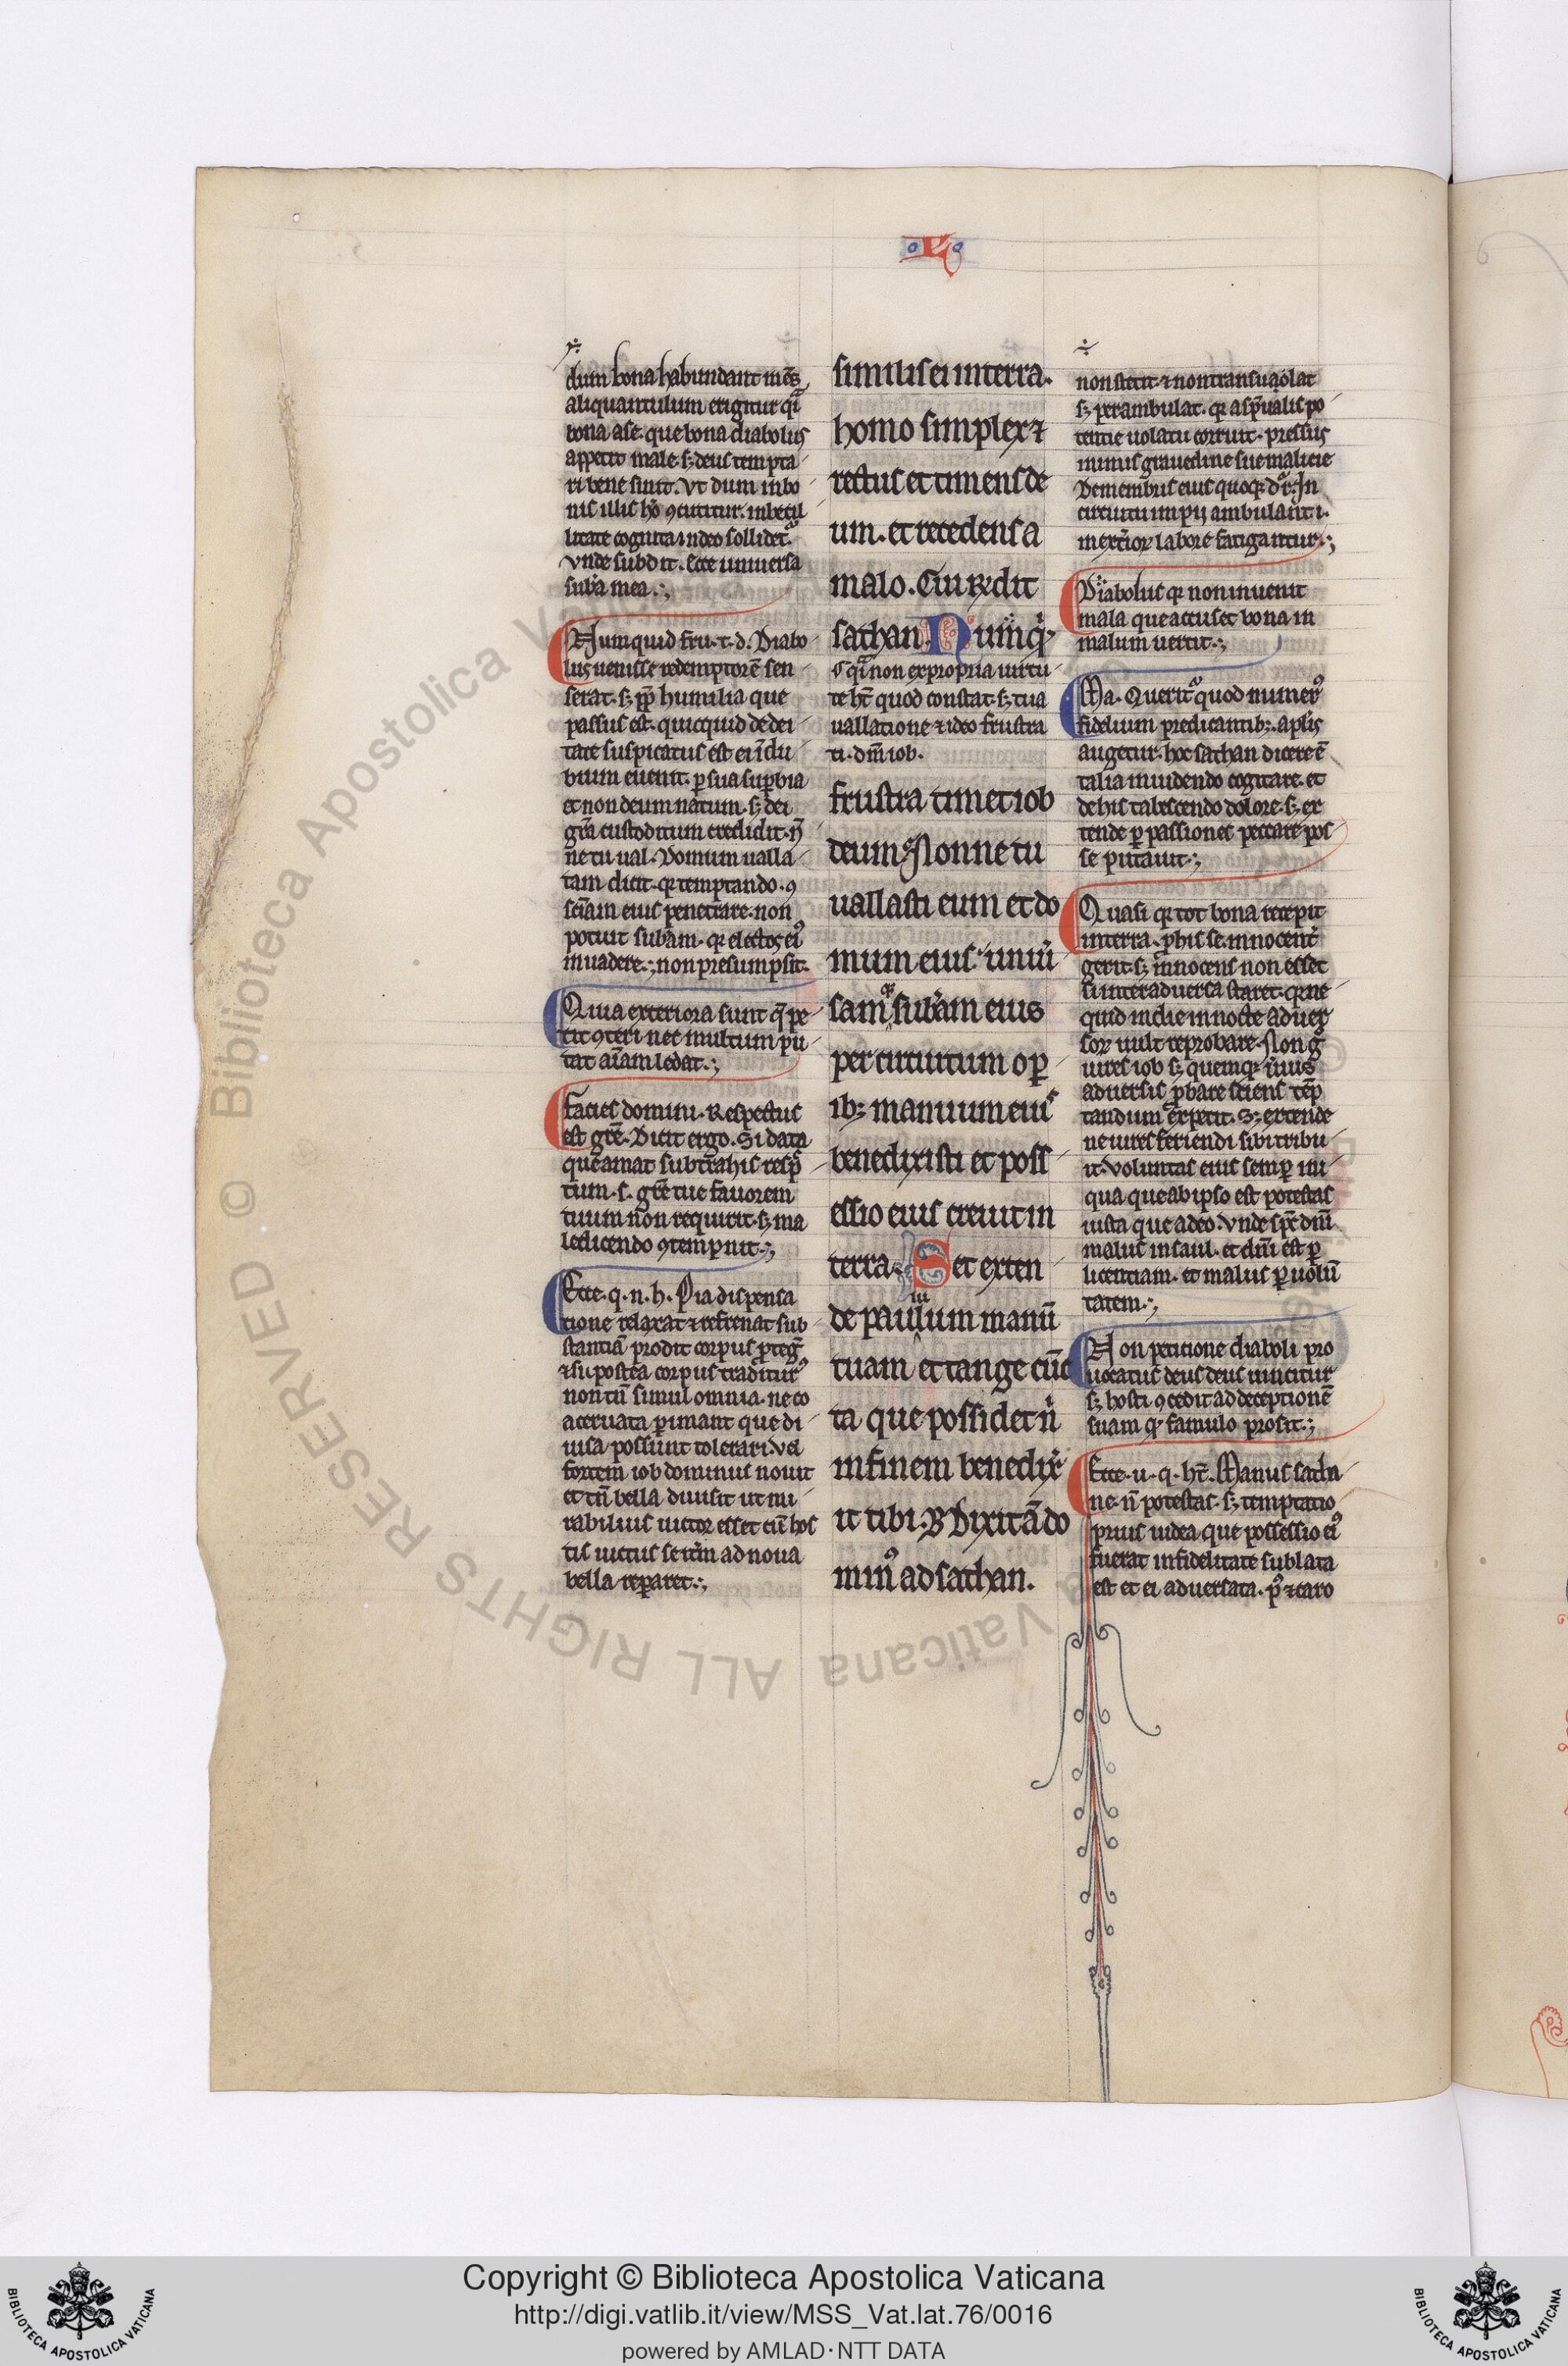 L
dum bona habundant mēs
aliquantulum erigitur qi
bona a se. que bona diabolus
appetit male. sꝫ deus tempta
ri bene sinit. vt dum in bo
nis illis hō ꝯcutitur. inbecil
litate cognita in deo sollidet᷑.
vnde subdit. Ecce uniuersa
suba mea.
Numquid fru. t. d. Diabo
lus uenisse redemptorē sen
serat. sꝫ pp̄ humilia que
passus est. quicquid de dei
tate suspicatus est ei ī du
bium euenit. ꝑ sua suꝑbia
et non deum natum. sꝫ dei
gr̄a custoditum credidit. n̄
ne tu ual. Domum ualla
tam dicit. qꝛ temptando. ꝯ
sciam eius penetrare. non
potuit subam. qꝛ electos eiꝰ
inuadere. non presumpsit.
Quia exteriora sunt q̄ pe
tit ꝯteri nec multum pu
tat aīam ledat.
facies domini. Respectus
est gr̄e. Dicit ergo. Si data
que amat subtrahis respc̄
tum. s. gr̄e tue fauorem
tuum non requirit. sꝫ ma
ledicendo ꝯtempnit.
Ecce. q. n. h. Pia dispensa
tione relaxat ⁊ refrenat sub
stantiā prodit corpus ꝓteḡ
⁊ si postea corpus traditurꝰ
non tn̄ simul omnia. ne co
aceruata ꝑimant que di
uisa possunt tolerari vel
fortem iob dominus nouit
et tn̄ bella diuisit ut mi
rabilius uictor esset cū hos
tis uictus se itm ad noua
bella reparet.
similis ei in terra.
homo simplex ⁊
rectus et timens de
um. et recedens a
malo. Cui Rn̄dit
sathan. Numqͥ
s. qͣ non ex propria uirtu
te ht̄ quod constat. sꝫ tua
uallatione ⁊ ideo frustra
ti. dm̄ iob.
frustra timet iob
deum. Nonne tu
uallasti eum et do
mum eius. uniū
samqꝫ subam eius
per circuitum oꝑ
ibꝫ manuum eiuˢ
benedixisti et poss
essio eius creuit in
terra. Set exten
de paululum manū
tuam et tange cūc
ta que possidet ni
in finem benedix
it tibi. B Dixit ā do
minꝰ ad sathan.
non stetit. ⁊ non transuaolat
sꝫ perambulat. qꝛ a sp̄ualis po
tentie uolatu corruit. pressus
nimis grauedine sue malicie
De membris eius quoqꝫ dr̄. In
circuitu impij ambulant. i.
in exterioꝝ labore fatigantur.
Diabolus qꝛ non inuenit
mala que accuset bona in
malum uertit.
Ma. Querit᷑ quod numerꝰ
fidelium predicantibꝫ. aplis
augetur. hoc sathan dicere ē
talia inuidendo cogitare. et
de his tabescendo dolore. sꝫ ex
tende ꝑ passiones peccare pos
se putauit.
Quasi qꝛ tot bona recepit
in terra. ꝓ his se innocent̄
gerit. sꝫ innocens non esset
si inter aduersa staret. qꝛ ne
quid in die in nocte aduer
soꝝ uult reprobare. Non g̃
uires iob sꝫ quemqꝫ unius
aduersis ꝓbare sciens tēp
tandum expetit. Sꝫ extende
ne uires feriendi sibi tribu
it. Voluntas eius semꝑ ini
qua que ab ipso est potestas
iusta que a deo. Vnde spc̄ dn̄i
malus in saul. et dn̄i est ꝑ
licentiam. et malus ꝑ uolun
tatem.
Non petitione diaboli pro
uocatus deus deus uincitur
sꝫ hosti ꝯcedit ad deceptionē
suam qꝛ famulo prosit.
Ecce. u. q. ht̄. Manus satha
ne. n̄ potestas. sꝫ temptatio
prius iudea que possessio eiꝰ
fuerat infidelitate sublata
est et ei aduersata. pꝰ ⁊ caro
Copyright © Biblioteca Apostolica Vaticana
http://digi.vatlib.it/view/MSS_Vat.lat.76/0016
powered by AMLAD·NTT DATA
BIBLIOTECA APOSTOLICA VATICANA
BIBLIOTECA APOSTOLICA VATICANA
ALL RIGHTS RESERVED © Biblioteca Apostolica Vaticana